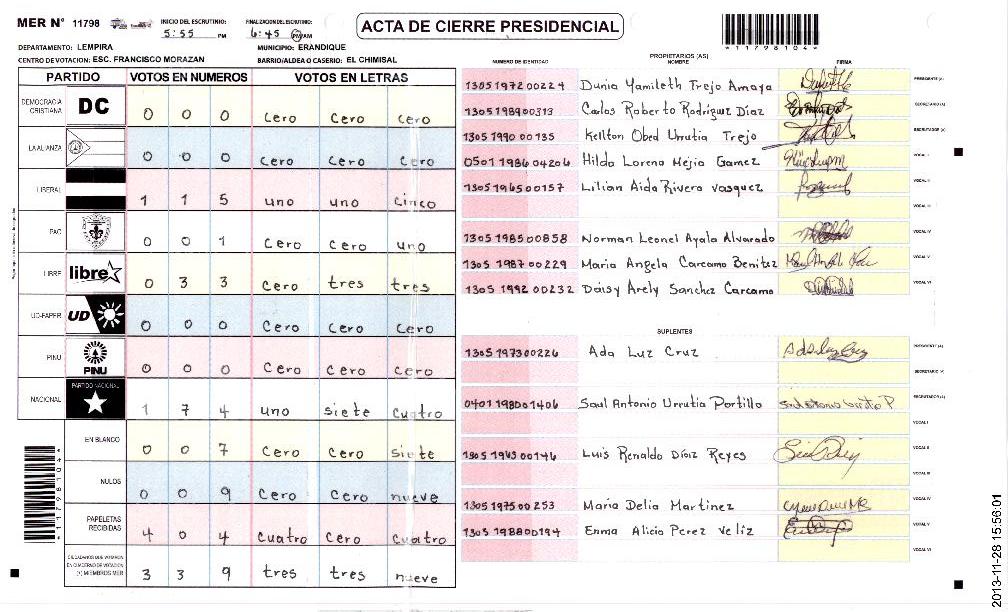 MER N° 11798
INICIO DEL ESCRUTINIO: 5:55 PM
FINALIZACION DEL ESCRUTINIO: 6:45 PM/AM
ACTA DE CIERRE PRESIDENCIAL
*11798104*
DEPARTAMENTO: LEMPIRA
MUNICIPIO: ERANDIQUE
CENTRO DE VOTACION: ESC. FRANCISCO MORAZAN
BARRIO/ALDEA O CASERIO: EL CHIMISAL
PARTIDO VOTOS EN NUMEROS VOTOS EN LETRAS
DEMOCRACIA CRISTIANA DC 0 0 0 Cero Cero Cero
LA ALIANZA 0 0 0 Cero Cero Cero
LIBERAL 1 1 5 uno uno cinco
PAC 0 0 1 Cero Cero uno
LIBRE libre 0 3 3 Cero tres tres
UD-FAPER UD 0 0 0 Cero Cero Cero
PINU PINU 0 0 0 Cero Cero Cero
NACIONAL PARTIDO NACIONAL 1 7 4 uno siete cuatro
EN BLANCO 0 0 7 Cero Cero siete
NULOS 0 0 9 Cero Cero nueve
PAPELETAS RECIBIDAS 4 0 4 Cuatro Cero Cuatro
CIUDADANOS QUE VOTARON EN CUADERNO DE VOTACION (+) MIEMBROS MER 3 3 9 tres tres nueve
*11798104*
NUMERO DE IDENTIDAD PROPIETARIOS (AS) NOMBRE FIRMA
1305 1972 00224 Dunia Yamileth Trejo Amaya PRESIDENTE (A)
1305 1989 00313 Carlos Roberto Rodríguez Díaz SECRETARIO (A)
1305 1990 00135 Kellton Obed Urrutia Trejo ESCRUTADOR (A)
0501 1986 04206 Hilda Lorena Mejia Gamez VOCAL I
1305 1965 00157 Lilian Aida Rivera Vasquez VOCAL II
VOCAL III
1305 1985 00858 Norman Leonel Ayala Alvarado VOCAL IV
1305 1987 00229 Maria Angela Carcamo Benitez VOCAL V
1305 1992 00232 Daisy Arely Sanchez Carcamo VOCAL VI
SUPLENTES
1305 1973 00226 Ada Luz Cruz PRESIDENTE (A)
SECRETARIO (A)
0401 1980 01406 Saul Antonio Urrutia Portillo ESCRUTADOR (A)
VOCAL I
1305 1963 00146 Luis Renaldo Díaz Reyes VOCAL II
VOCAL III
1305 1975 00253 Maria Delia Martinez VOCAL IV
1305 1988 00194 Enma Alicia Perez Veliz VOCAL V
VOCAL VI
2013-11-28 15:56:01